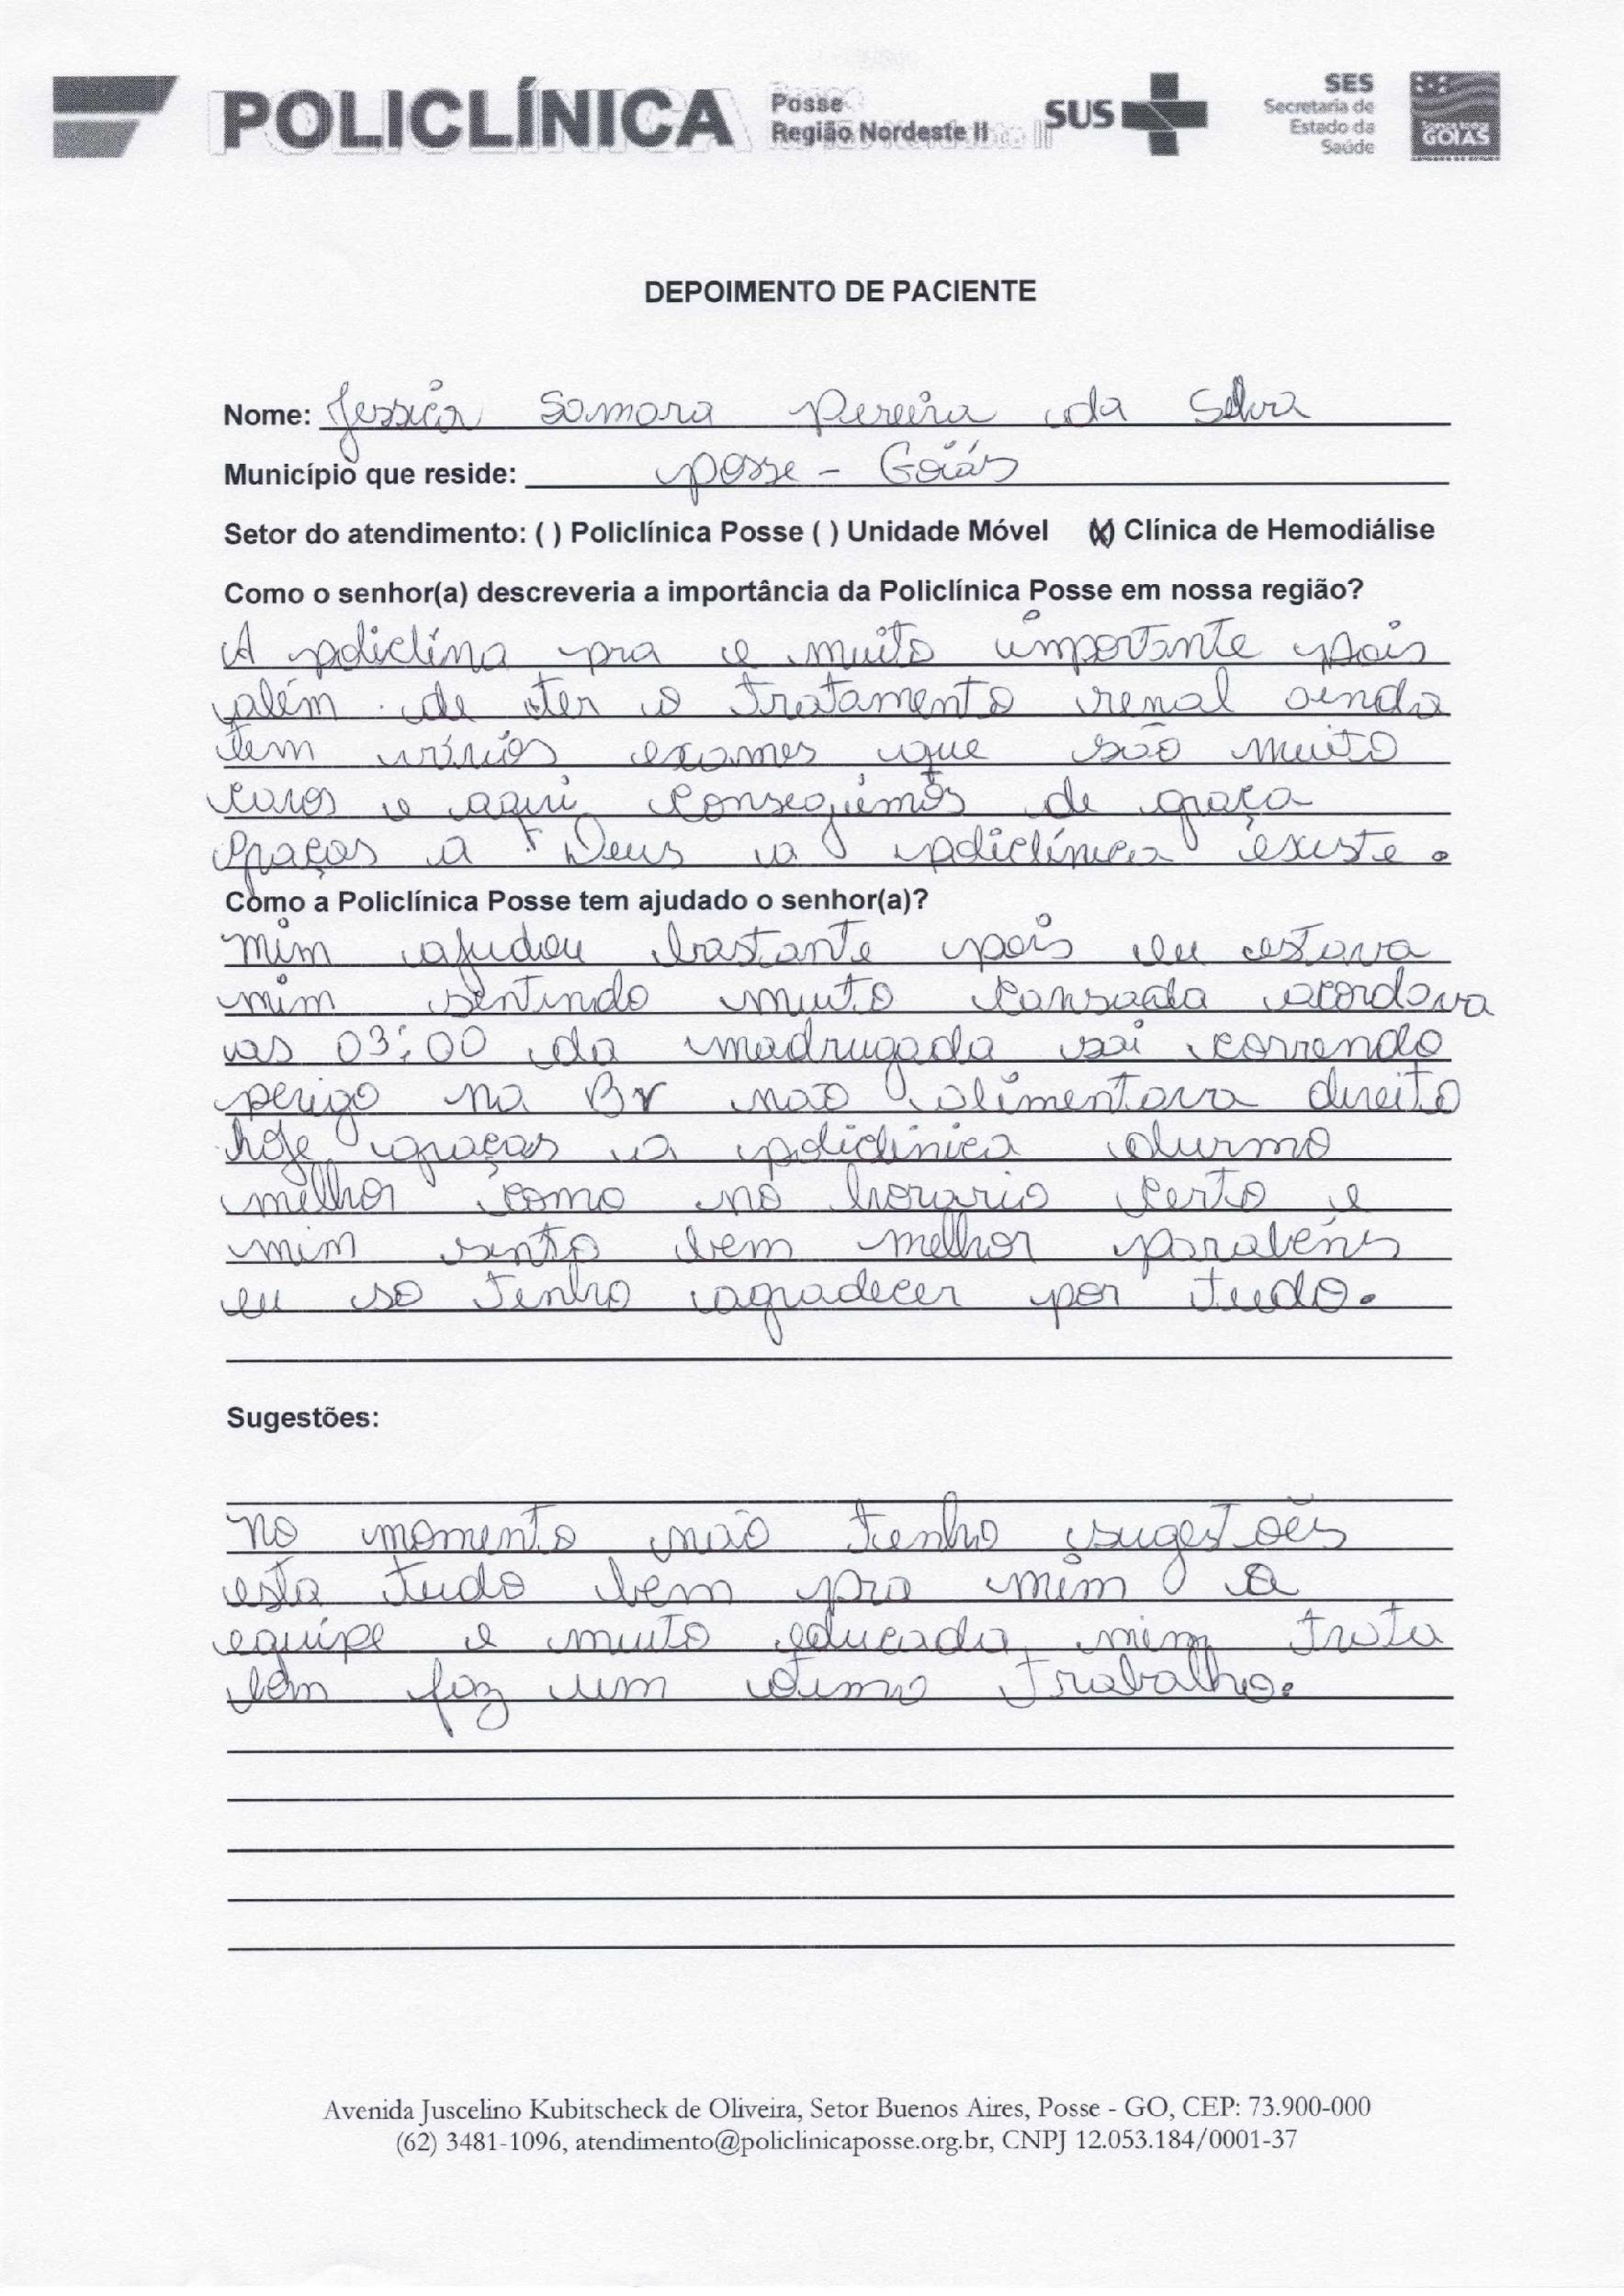 POLICLÍNICA
Posse
Região Nordeste II
SUS
SES
Secretaria de
Estado da
Saúde
GOIÁS
DEPOIMENTO DE PACIENTE
Nome: Jessica Samara Pereira da Silva
Município que reside: posse - Goiás
Setor do atendimento: ( ) Policlínica Posse ( ) Unidade Móvel (X) Clínica de Hemodiálise
Como o senhor(a) descreveria a importância da Policlínica Posse em nossa região?
A policlína pra e muito importante pois
além de ter o tratamento renal ainda
tem vários exames que são muito
caros e aqui conseguimos de graça
graças a Deus a policlínica existe.
Como a Policlínica Posse tem ajudado o senhor(a)?
mim ajudou bastante pois eu estava
mim sentindo muito cansada acordava
as 03:00 da madrugada sai correndo
perigo na Br não alimentava direito
hoje graças a policlinica durmo
melhor como no horario certo e
mim sinto bem melhor parabéns
eu so tenho agradecer por tudo.
Sugestões:
no momento não tenho sugestões
esta tudo bem pra mim a
equipe e muito educada mim trata
bem faz um otimo trabalho.
Avenida Juscelino Kubitscheck de Oliveira, Setor Buenos Aires, Posse - GO, CEP: 73.900-000
(62) 3481-1096, atendimento@policlinicaposse.org.br, CNPJ 12.053.184/0001-37